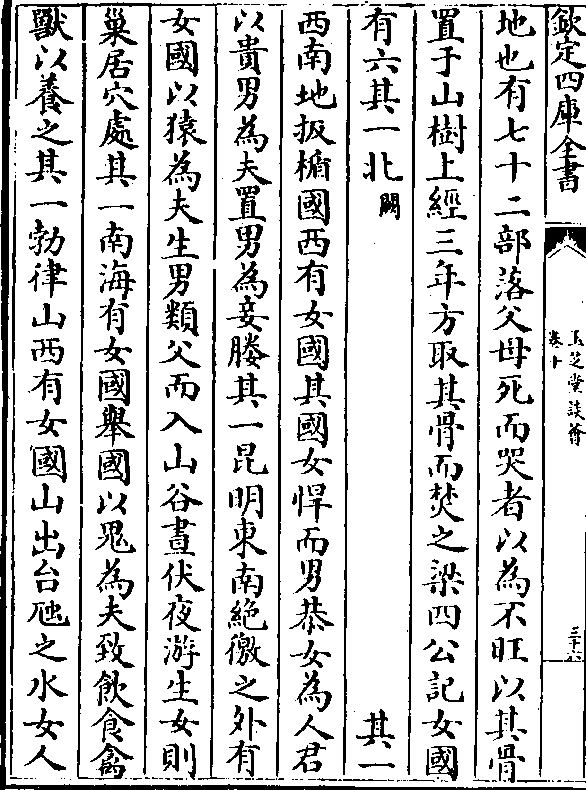 欽定四庫全書
玉芝堂談薈
卷十
三十六
地也有七十二部落父母死而哭者以為不旺以其骨
置于山樹上經三年方取其骨而焚之梁四公記女國
有六其一北闕 其一
西南地扳楯國西有女國其國女悍而男恭女為人君
以貴男為夫置男為妾媵其一昆明東南絕徼之外有
女國以猿為夫生男類父而入山谷晝伏夜游生女則
巢居穴處其一南海有女國舉國以鬼為夫致飲食禽
獸以養之其一勃律山西有女國山出台虺之水女人